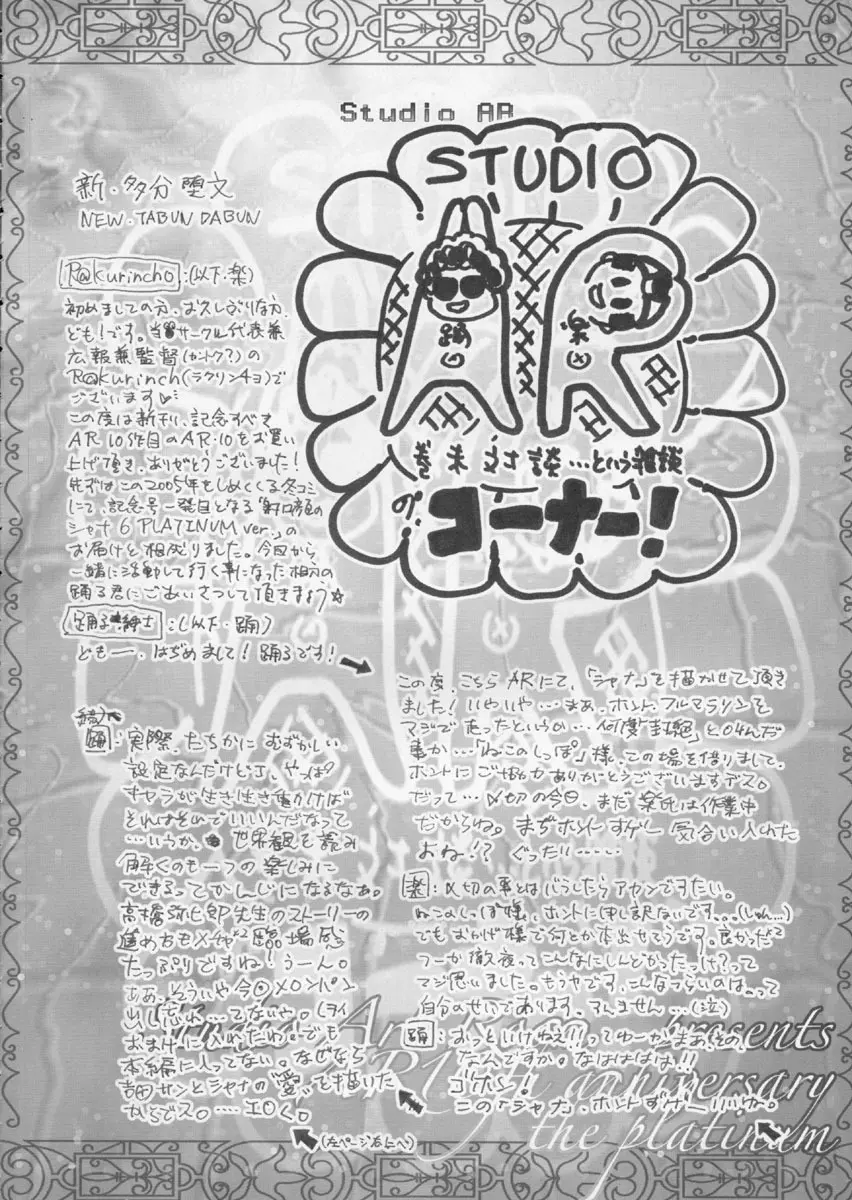 Studio AR
新・多分堕文
NEW・TABUN DABUN
STUDIO
AR
踊
楽
巻末対談…という雑談
の、コーナー!
R@kurincho:(以下・楽)
初めましての方、お久しぶりな方、
ども!です。当サークル代表兼
広報兼監督(カントク?)の
R@kurinch(ラクリンチョ)で
ございます
この度は新刊、記念すべき
AR10作目のAR・10をお買い
上げ頂き、ありがとうございました!
先ずはこの2005年をしめくくる冬コミ
にて、記念号一発目となる「
シャナ6 PLATINUM ver.」の
お届けと相成りました。今回から
一緒に活動して行く事になった相方の
踊る君にごあいさつして頂きましょう☆
踊る紳士:(以下・踊)
どもー、はぢめまして!踊るです!
この度、こちらARにて、「シャナ」を描かせて頂き
ました!いやいや…まあ、ホント、フルマラソンを
マジで走ったというか…何度
事か…「ねこのしっぽ」様、この場を借りまして、
ホントにご協力ありがとうございますデス。
だって…〆切の今日、まだ楽氏は作業中
だからね。まぢホントすげー気合い入れた
おね!?ぐったり……
楽:〆切の事とはバラしたらアカンですたい。
ねこのしっぽ様、ホントに申し訳ないです…(しゅん…)
でもおかげ様で何とか本出せそうです。良かった²
つーか徹夜ってこんなにしんどかったっけ?って
マジ思いました。もうヤです、こんなつらいのは…って
自分のせいであります。すんません…(泣)
踊:おっといけねぇ!!ってゆーか、まあ、その、
なんですか。なはははは!!
ゴホン!
この「シャナ」、ホントすげーいいよ。
踊:実際、たしかにむずかしい
設定なんだけどさ、やっぱ
キャラが生き生き動けば
それはそのでいいんだなって
…いうか、世界観を読み
解くのも一つの楽しみに
できるってかんじになるなぁ。
高橋弥七郎先生のストーリーの
進め方もメチャ²臨場感
たっぷりですね!うーん。
ああ、そういや今回メロンパン
出し忘れ…てないや。
おまけに入れたわ。でも
本編に入ってない。なぜなら
吉田サンとシャナの“愛”を描いた
からでス。…エロく。
(左ページ右上へ)
presents
anniversary
the platinum